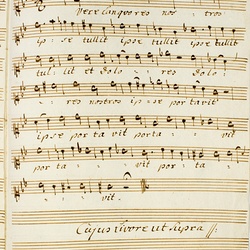 Vere languores nos : tros
ip : se tullit ipse tullit ipse tullit
tul : lit et dolo : : res dolo :
: : res nostros ip : se portavit
ipse porta vit porta : vi :
porta : : vit porta :
: : : vit.
Cujus livore ut supra //: